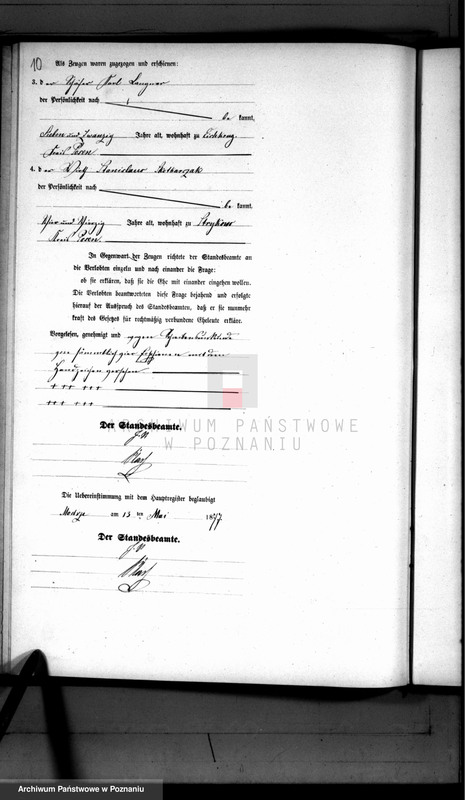 10 Als Zeugen waren zugezogen und erschienen:
3. der Schäfer Karl Langner
der Persönlichkeit nach
be kannt,
Sieben und zwanzig Jahre alt, wohnhaft zu
Kreis Posen
4. der Wirth Stanislaus
der Persönlichkeit nach
be kannt,
Vier und Vierzig Jahre alt, wohnhaft zu Strykowo
Kreis Posen.
In Gegenwart der Zeugen richtete der Standesbeamte an
die Verlobten einzeln und nach einander die Frage:
ob sie erklären, daß sie die Ehe mit einander eingehen wollen.
Die Verlobten beantworteten diese Frage bejahend und erfolgte
hierauf der Ausspruch des Standesbeamten, daß er sie nunmehr
kraft des Gesetzes für rechtmäßig verbundene Eheleute erkläre.
Vorgelesen, genehmigt und wegen Schreibensunkunde
von sämmtlichen vier Erschienenen mit den
Handzeichen versehen
+++ +++ +++
+++ +++ +++
Der Standesbeamte.
Die Uebereinstimmung mit dem Hauptregister beglaubigt
am 13 ten Mai 1877
Der Standesbeamte.
ARCHIWUM PAŃSTWOWE
W POZNANIU
Archiwum Państwowe w Poznaniu